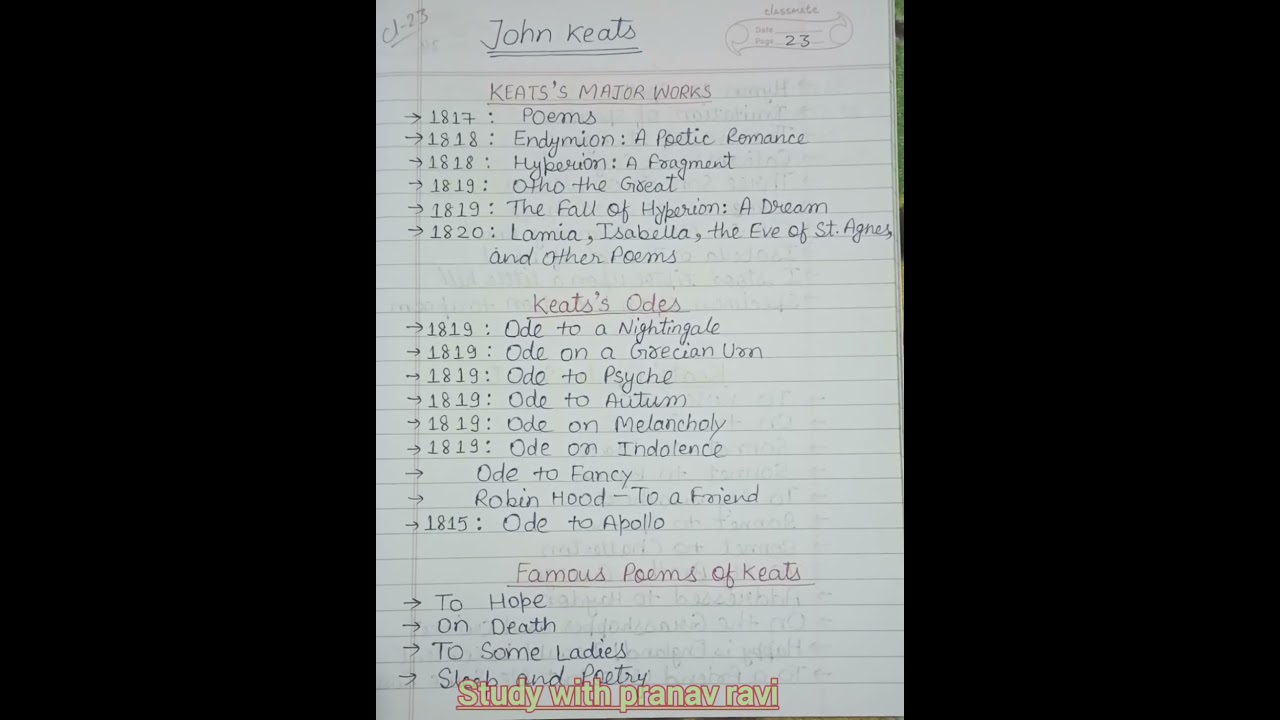 cl-23
classmate
John Keats
Date
Page 23
KEATS'S MAJOR WORKS
→ 1817 : Poems
→ 1818 : Endymion : A Poetic Romance
→ 1818 : Hyperion : A Fragment
→ 1819 : Otho the Great
→ 1819 : The Fall of Hyperion : A Dream
→ 1820 : Lamia, Isabella, the Eve of St. Agnes,
and Other Poems
Keats's Odes
→ 1819 : Ode to a Nightingale
→ 1819 : Ode on a Grecian Urn
→ 1819 : Ode to Psyche
→ 1819 : Ode to Autum
→ 1819 : Ode on Melancholy
→ 1819 : Ode on Indolence
→ Ode to Fancy
→ Robin Hood - To a Friend
→ 1815 : Ode to Apollo
Famous Poems of Keats
→ To Hope
→ On Death
→ To Some Ladies
→ Sleep and Poetry
Study with pranav ravi